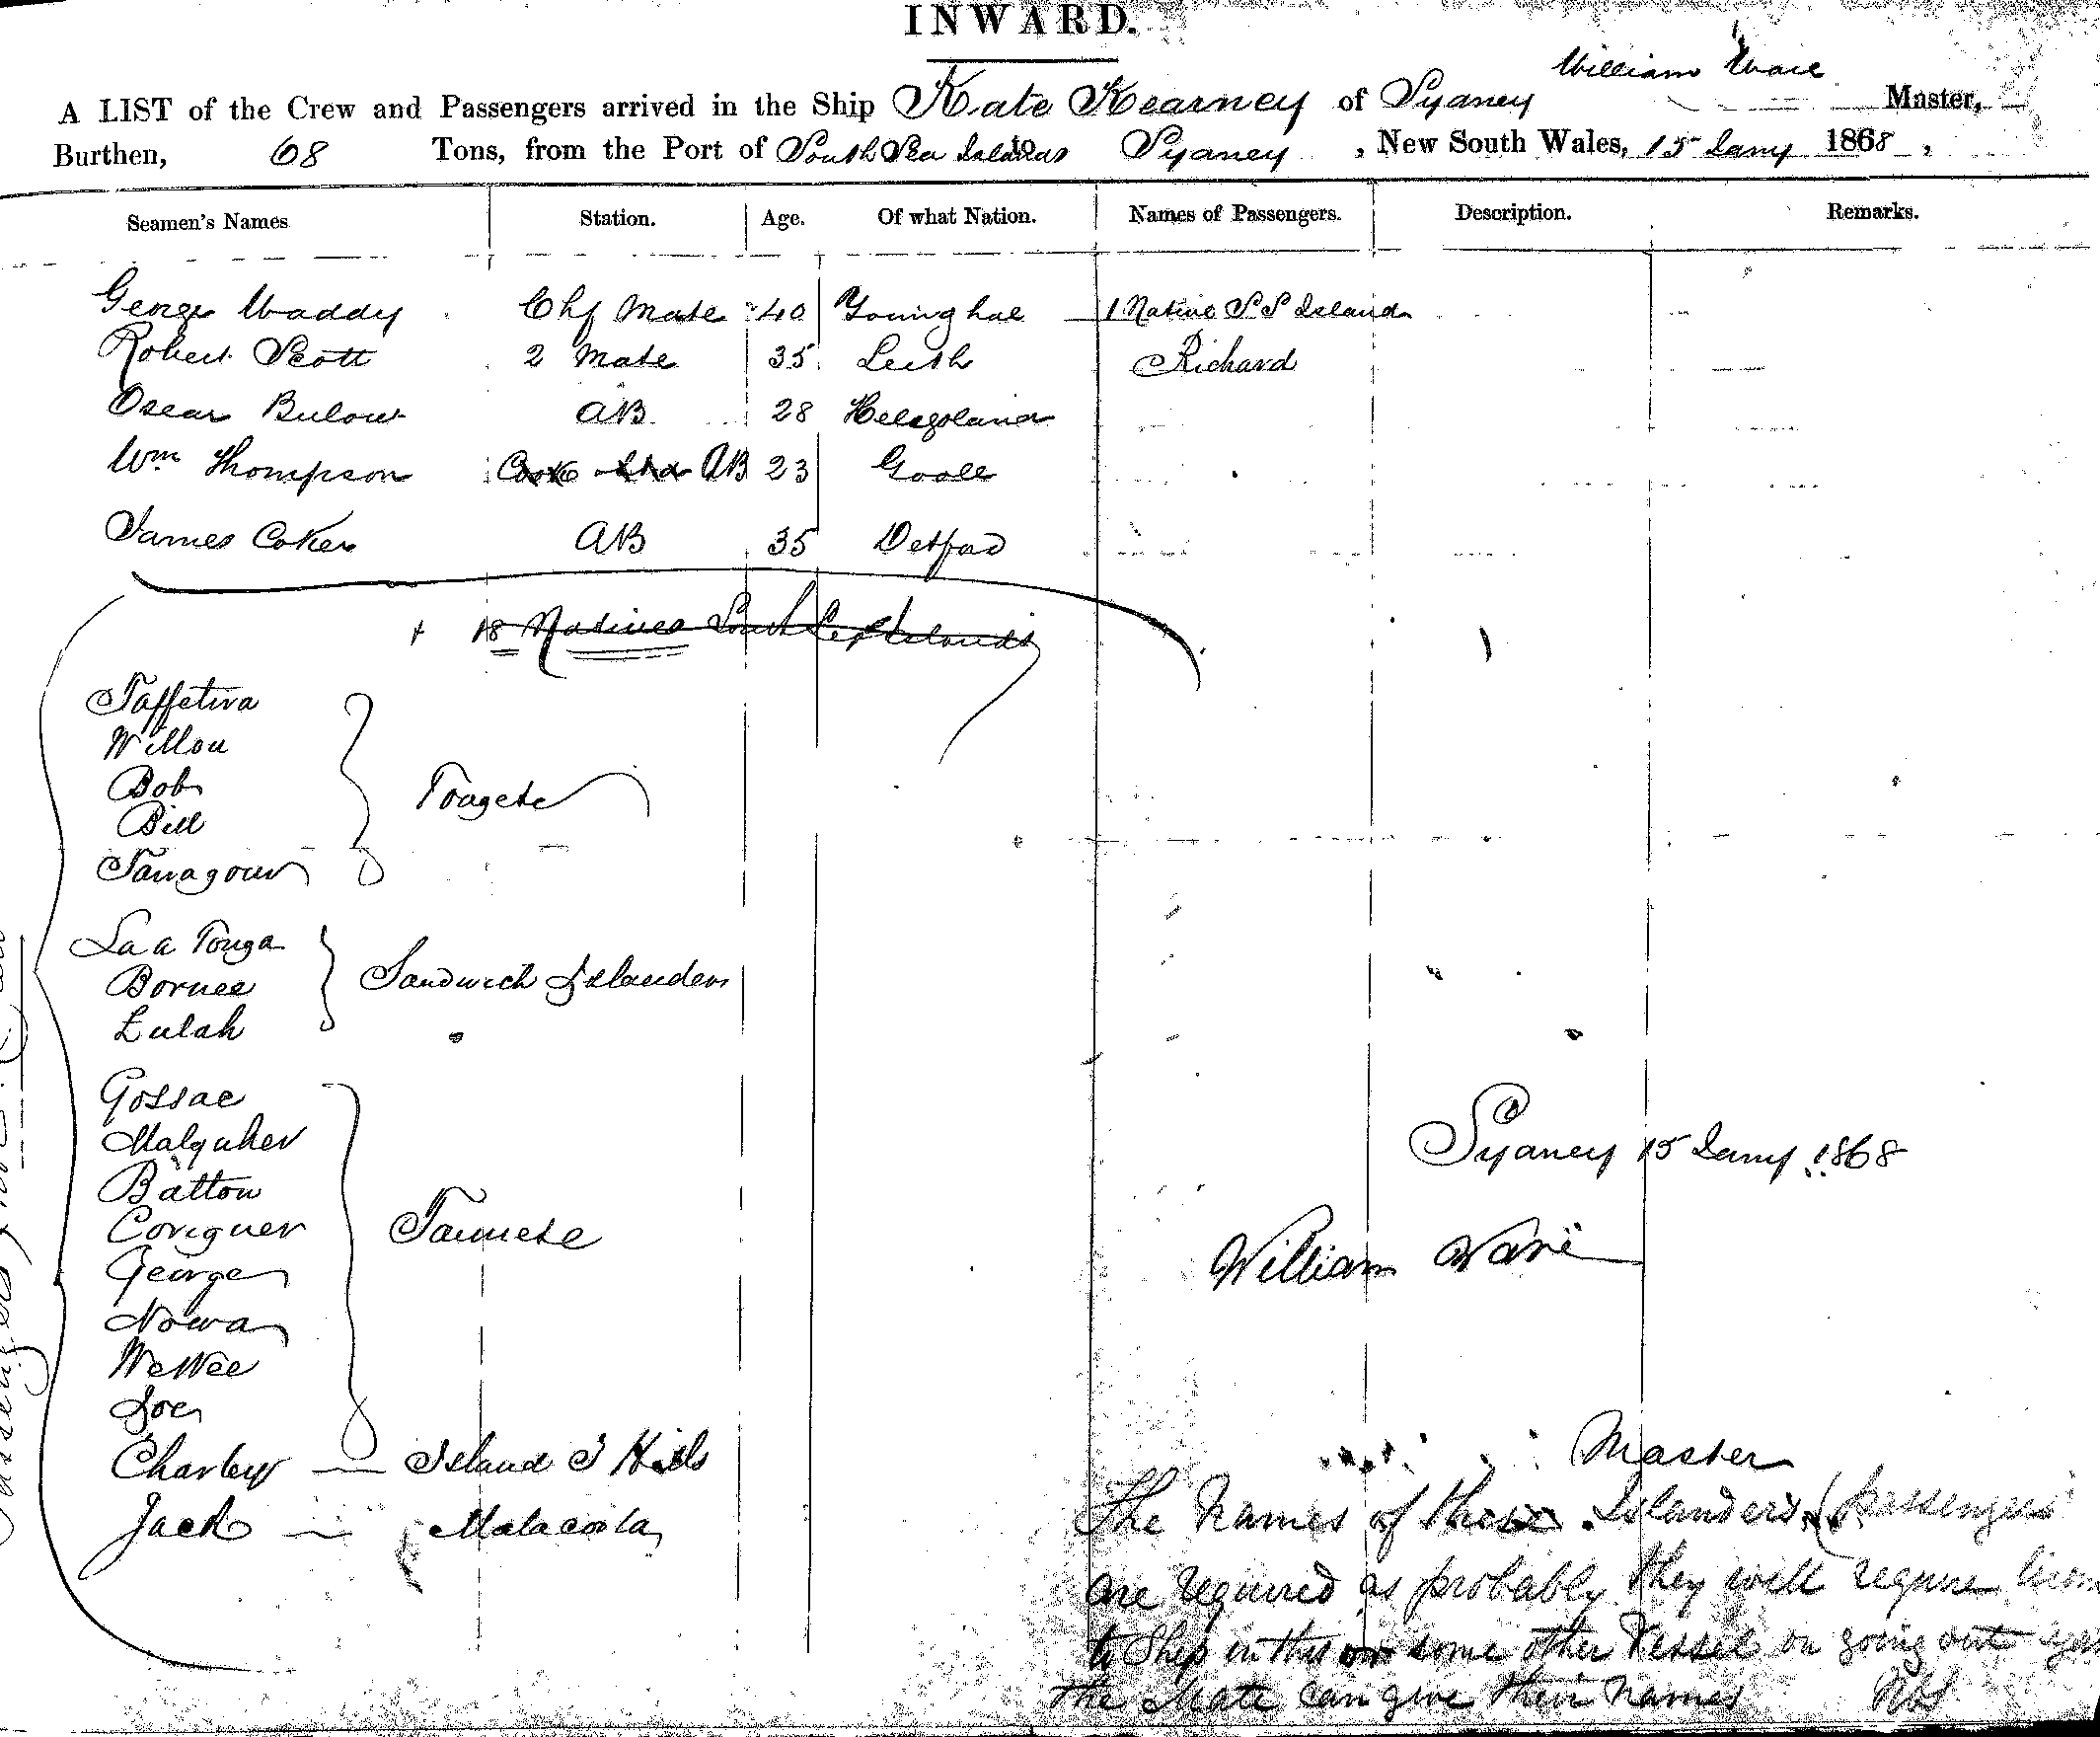 INWARD.
William Ware
A LIST of the Crew and Passengers arrived in the Ship Kate Kearney of Sydney Master,
Burthen, 68 Tons, from the Port of South Sea Islands to Sydney, New South Wales, 15 Jany 1868,
Seamen's Names Station. Age. Of what Nation. Names of Passengers. Description. Remarks.
George Waddy Chf Mate 40 Youinghae 1 Native S S Island
Robert Scott 2 Mate 35 Leith Richard
Oscar Bulow AB 28 Heligoland
Wm Thompson Cook and AB 23 Goole
James Coker AB 35 Detford
+ 18 Natives South Sea Islands
Taffetiva
Willou
Bob
Bill
Tongese
Tanagour
Laa Tonga
Bornee
Sandwich Islanders
Lulah
Gossae
Malquher
Batton
Coriguer
Tannese
George
Nowa
WeWee
Joe
Charley — Island
Jack — Malacola
Sydney 15 Jany 1868
William Ware
Master
The Names of these Islanders (passengers
are required as probably they will require
to Ship in this or some other Vessel on going out
the Mate can give their names